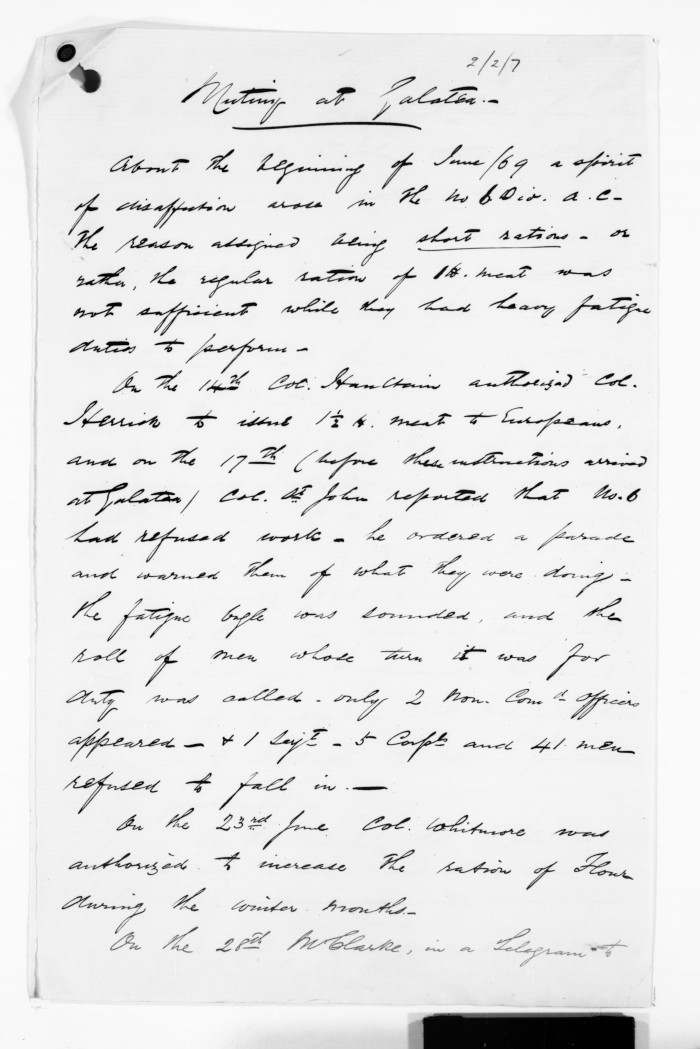 2/2/7
Mutiny at Galatea. -
About the beginning of June/69 a spirit
of disaffection arose in the No. 6 Div. A.C -
the reason assigned being short rations - or
rather, the regular ration of 1 lb. meat was
not sufficient while they had heavy fatigue
duties to perform -
On the 14th Col. Haultain authorized Col.
Herrick to issue 1½ lb. meat to Europeans,
and on the 17th (before these instructions arrived
at Galatea) Col. St John reported that No. 6
had refused work - he ordered a parade
and warned them of what they were doing -
the fatigue bugle was sounded, and the
roll of men whose turn it was for
duty was called - only 2 Non. Comd Officers
appeared - & 1 Sejt - 5 Corpls and 41 men
refused to fall in. -
On the 23rd June Col. Whitmore was
authorized to increase the ration of Flour
during the winter months -
On the 28th Mr Clarke, in a Telegram to